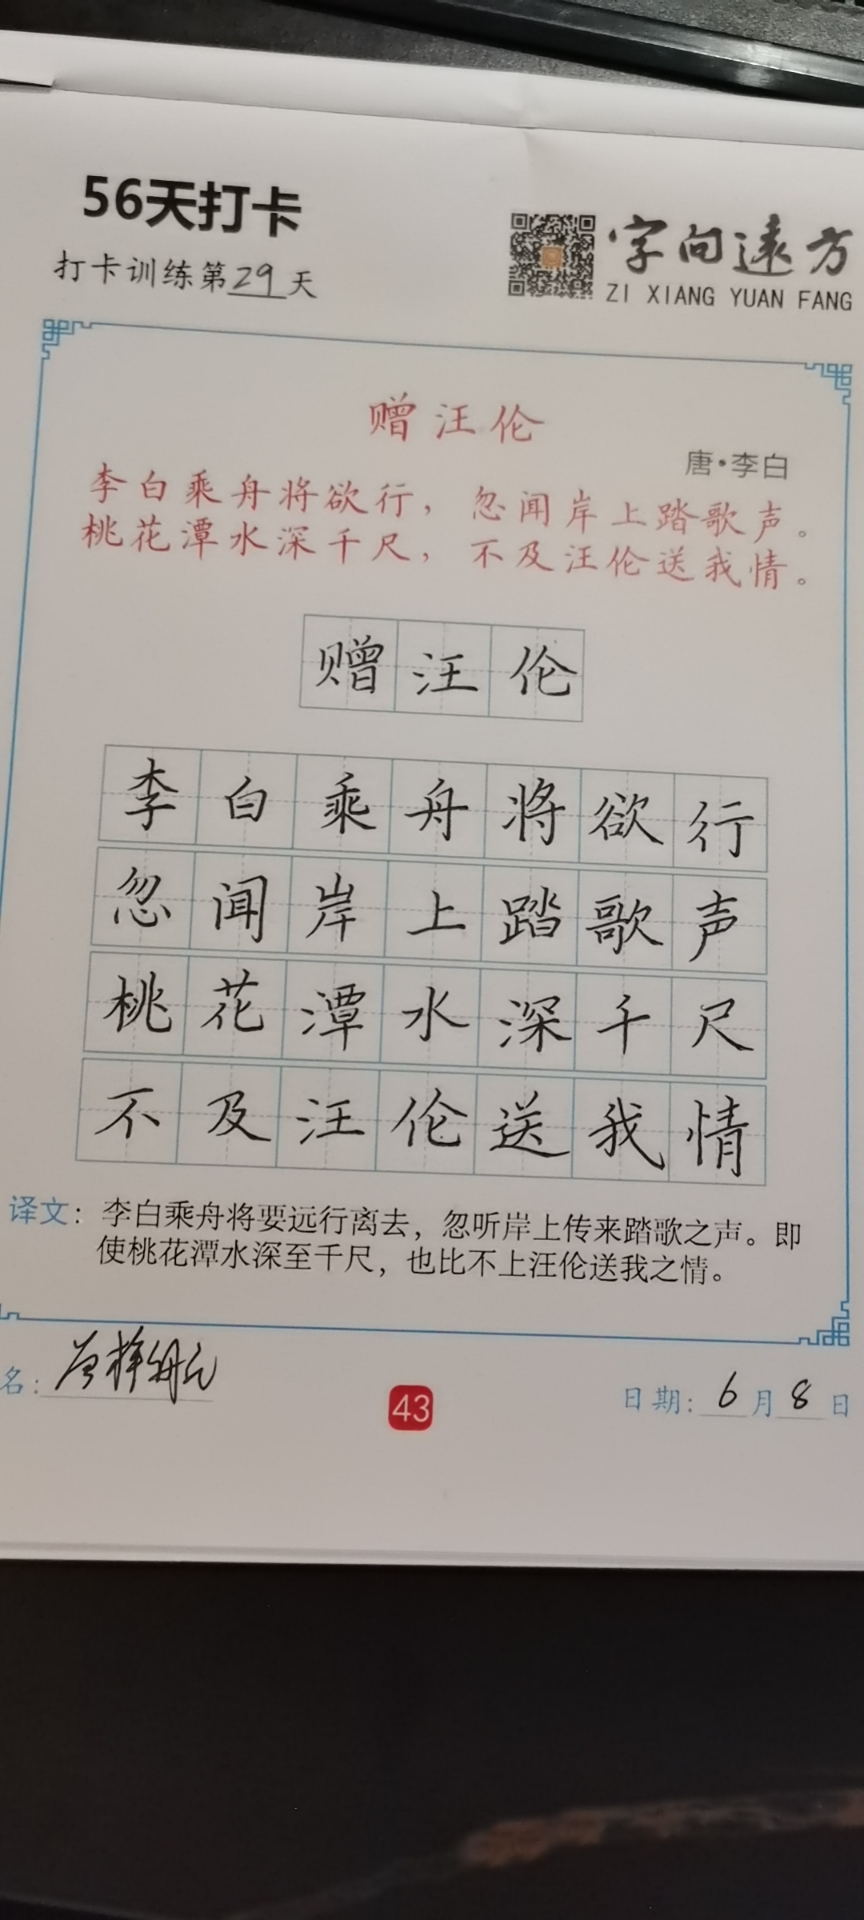 56天打卡
打卡训练第29天
字向遠方
ZI XIANG YUAN FANG
赠汪伦
唐·李白
李白乘舟将欲行，忽闻岸上踏歌声。
桃花潭水深千尺，不及汪伦送我情。
赠汪伦
李白乘舟将欲行
忽闻岸上踏歌声
桃花潭水深千尺
不及汪伦送我情
译文：李白乘舟将要远行离去，忽听岸上传来踏歌之声。即
使桃花潭水深至千尺，也比不上汪伦送我之情。
名：
43
日期：6月8日